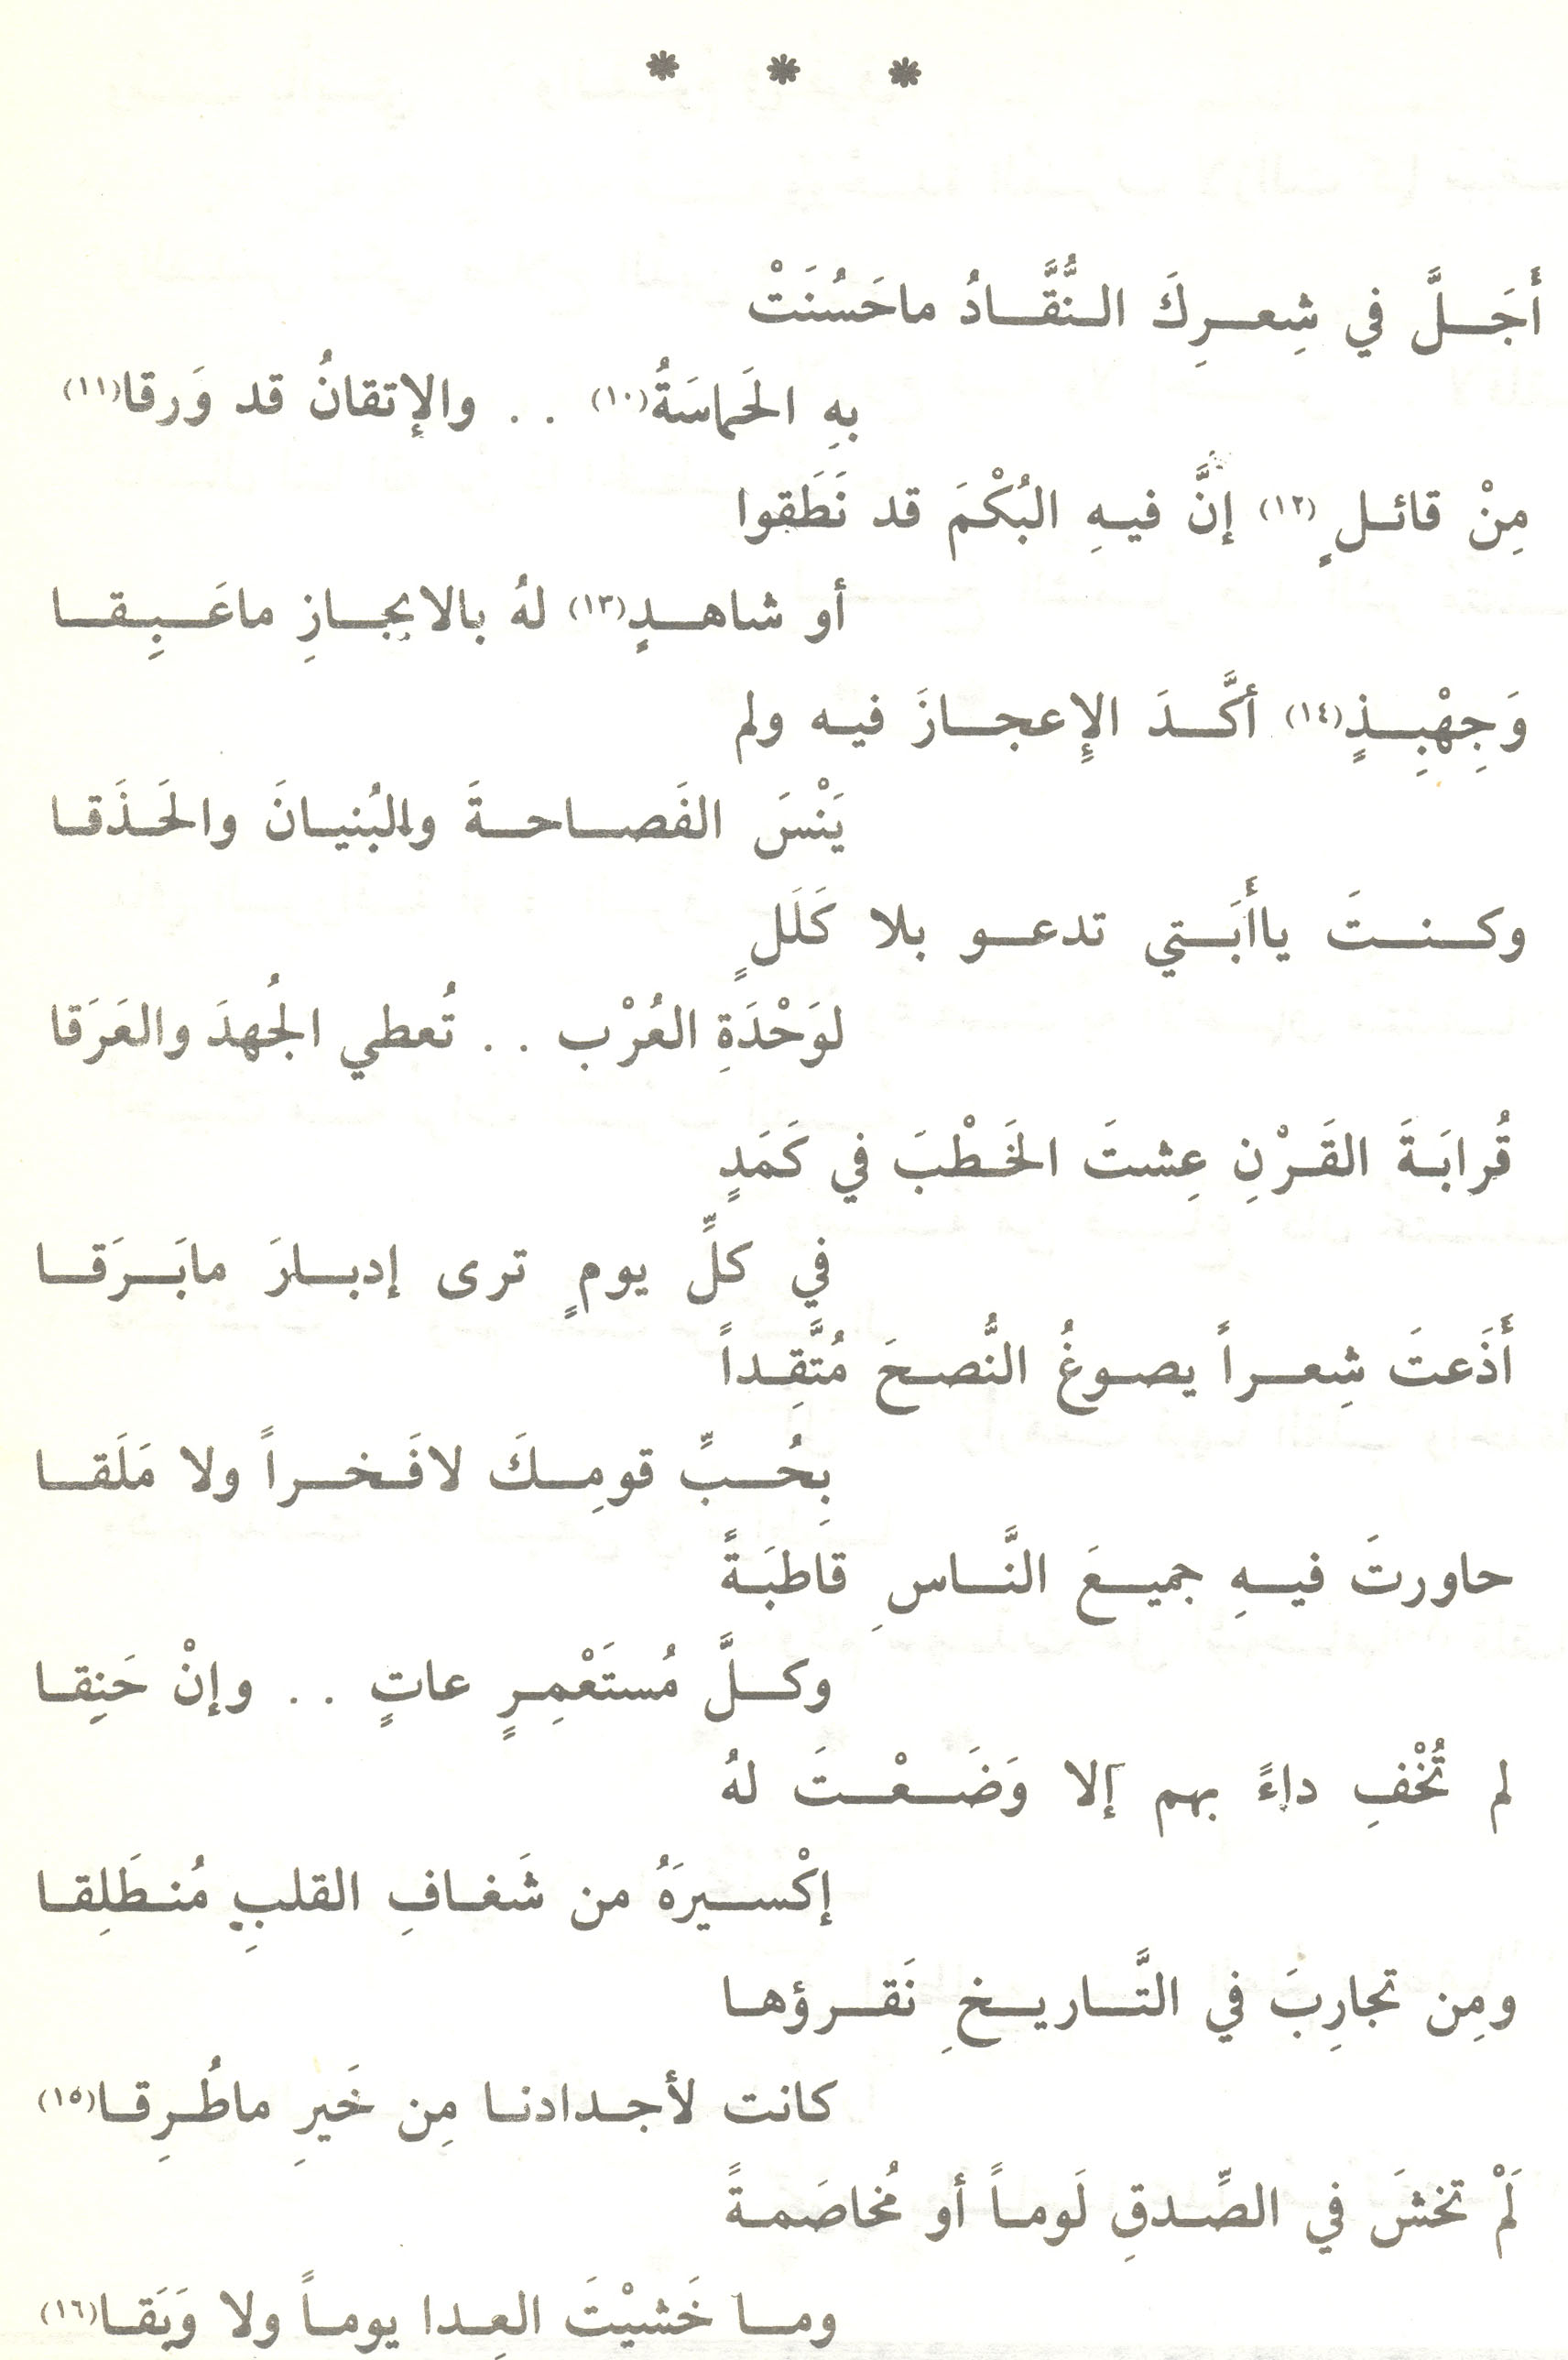 * * *
أَجَلَّ في شِعرِكَ النُّقَّادُ ماحَسُنَتْ
بهِ الحَماسَةُ(١٠) . . والإتقانُ قد وَرقا(١١)
مِنْ قائلٍ(١٢) إنَّ فيهِ البُكْمَ قد نَطَقوا
أو شاهدٍ(١٣) لهُ بالايجازِ ماعَبِقا
وَجِهْبِذٍ(١٤) أكَّدَ الإِعجازَ فيه ولم
يَنْسَ الفَصاحةَ والبُنيانَ والحَذَقا
وكنتَ ياأَبَتي تدعو بلا كَلَلٍ
لوَحْدَةِ العُرْب . . تُعطي الجُهدَ والعَرَقا
قُرابَةَ القَرْنِ عِشتَ الخَطْبَ في كَمَدٍ
في كلِّ يومٍ ترى إدبارَ مابَرَقا
أَذَعتَ شِعراً يصوغُ النُّصحَ مُتَّقِداً
بِحُبِّ قومِكَ لافَخراً ولا مَلَقا
حاورتَ فيهِ جميعَ النَّاسِ قاطبَةً
وكلَّ مُستَعْمِرٍ عاتٍ . . وإنْ حَنِقا
لم تُخْفِ داءً بهم إلا وَضَعْتَ لهُ
إكْسيرَهُ من شَغافِ القلبِ مُنطَلِقا
ومِن تجارِبَ في التَّاريخِ نَقرؤها
كانت لأجدادنا مِن خَيرِ ماطُرِقا(١٥)
لَمْ تخشَ في الصِّدقِ لَوماً أو مُخاصَمةً
وما خَشيْتَ العِدا يوماً ولا وَبَقا(١٦)